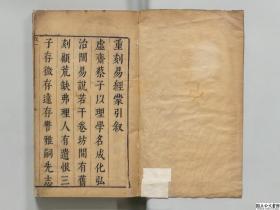 重刻易經蒙引敘
虛齋蔡子以理學名成化弘
治間易說若干卷坊間有舊
刻顧荒缺弗理人有遺恨三
子存微存遠存警雅嗣先志